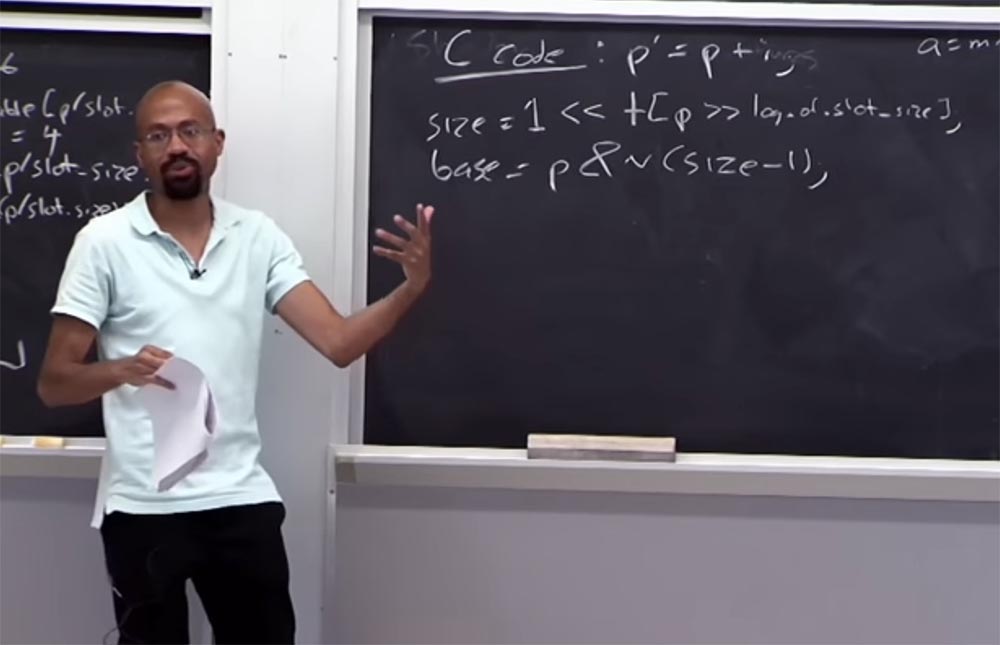 6
[p/slot.
= 4
p/slot_size.
p/slot.size
C code : p' = p + i;
a = m
size = 1 << t[p >> log.of.slot_size];
base = p & ~(size-1);